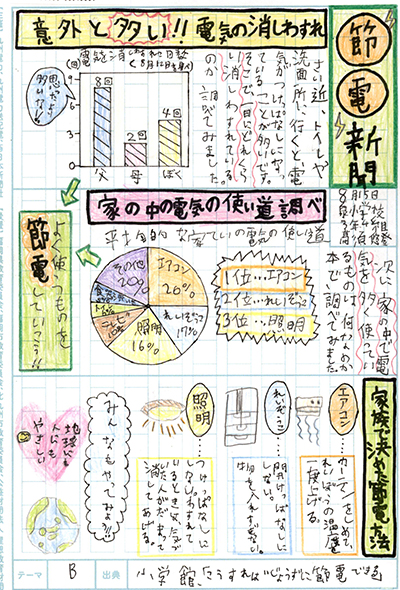 節電新聞
8月15日
意外と多い!!電気の消しわすれ
さい近、トイレや
洗面所に行くと、電
気がつけっぱなしになっ
ていることが多いです。
そこで、一日にどれくら
い消しわすれている
のか調べてみました。
(回)
9
6
3
0
8回
2回
4回
父
母
ぼく
思ったより
多いな!!
家の中の電気の使い道調べ
平均的な家ていの電気の使い道
次に、家の中で電
気を多く使ってい
るものは何なのか
本で調べてみました。
1位…エアコン
2位…れいぞうこ
3位…照明
エアコン
20%
れいぞうこ
17%
照明
16%
テレビ
その他
20%
よく使うものを
節電
していこう!!
家族で決めた節電方法
エアコン
…カーテンをしめて、
れいぼうの温度
一度上げる。
れいぞうこ
…開けっぱなしに
物を入れすぎない。
照明
…つけっぱなしに
しないわすれて
いるときは、気づ
いた人がだまって
消してあげる。
みんなもやってみよう!!
地球にも
人にも
やさしい
テーマ
B
出典
小学館